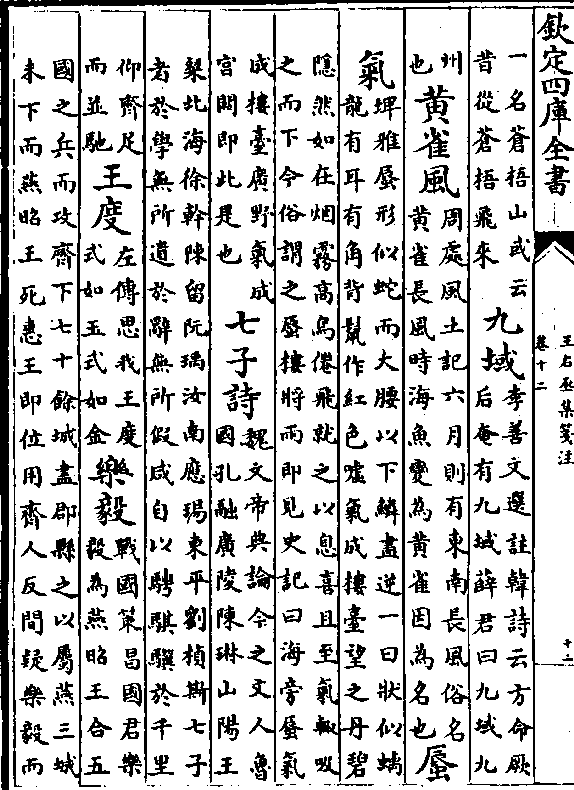 欽定四庫全書
王右丞集箋注
卷十二
十二
一名蒼梧山或云
昔從蒼梧飛來
九域
李善文選註韓詩云方命厥
后奄有九域薛君曰九域九
州
也
黃雀風
周處風土記六月則有東南長風俗名
黃雀長風時海魚變為黃雀因為名也
蜃
氣
埤雅蜃形似蛇而大腰以下鱗盡逆一曰狀似螭
龍有耳有角背鬣作紅色噓氣成樓臺望之丹碧
隱然如在烟霧高鳥倦飛就之以息喜且至氣輒吸
之而下今俗謂之蜃樓將雨即見史記曰海旁蜃氣
成樓臺廣野氣成
宮闕即此是也
七子詩
魏文帝典論今之文人魯
國孔融廣陵陳琳山陽王
粲北海徐幹陳留阮瑀汝南應瑒東平劉楨斯七子
者於學無所遺於辭無所假咸自以騁騏驥於千里
仰齊足
而並馳
王度
左傳思我王度
式如玉式如金
樂毅
戰國策昌國君樂
毅為燕昭王合五
國之兵而攻齊下七十餘城盡郡縣之以屬燕三城
未下而燕昭王死惠王即位用齊人反間疑樂毅而